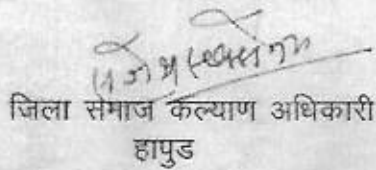 जिला समाज कल्याण अधिकारी
हापुड